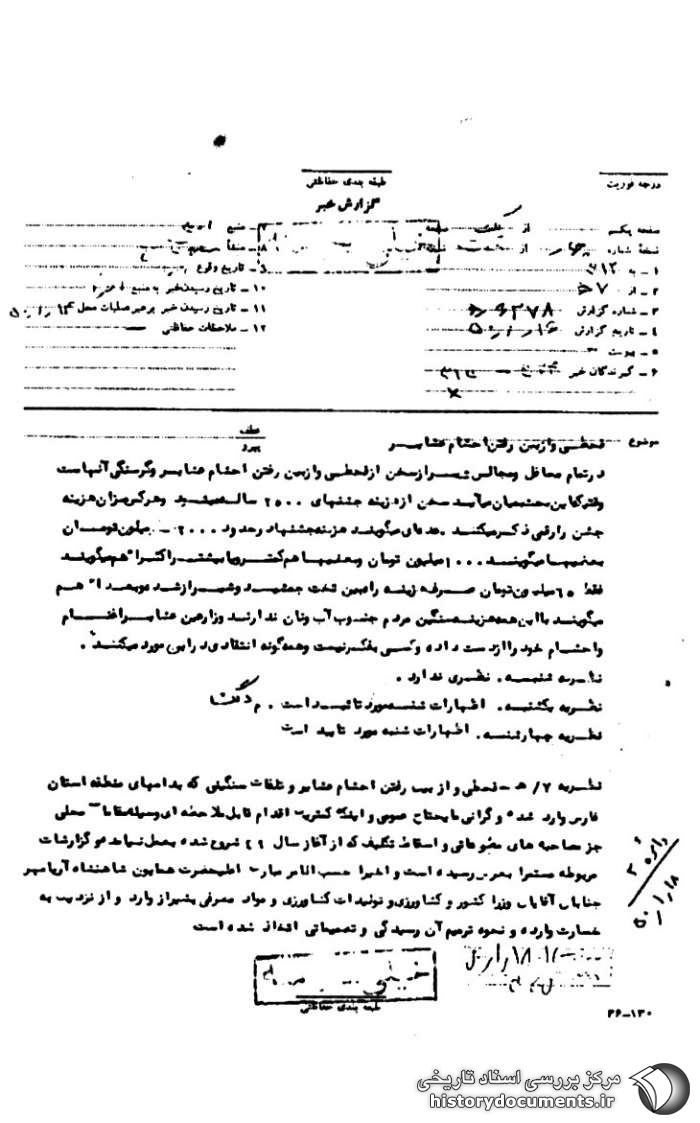 درجه فوریت
طبقه بندی حفاظتی
گزارش خبر
صفحه یکم از
نسخه شماره از
۱ ـ به ۳۱۲
۲ ـ از ۷ ه
۳ ـ شماره گزارش
۴ ـ تاریخ گزارش ۵۰٫۱٫۱۶
۵ ـ پیوست
۶ ـ گیرندگان خبر
۷ ـ منبع
۸ ـ منشأ
۹ ـ تاریخ وقوع
۱۰ ـ تاریخ رسیدن خبر به منبع
۱۱ ـ تاریخ رسیدن خبر برهبر عملیات محل
۱۲ ـ ملاحظات حفاظتی
موضوع قحطی و ازبین رفتن احشام عشایر
عطف
پیرو
در تمام محافل و مجالس شیراز سخن از قحطی و ازبین رفتن احشام عشایر و گرسنگی آنهاست
وقتیکه این بحث بمیان میآید سخن از هزینه جشنهای ۲۵۰۰ ساله میشود و هرکس میزان هزینه
جشن را رقمی ذکر میکند. عده‌ای میگویند هزینه جشنها در حدود ۲۰۰۰ میلیون تومان
بعضیها میگویند ۱۰۰۰ میلیون تومان و بعضیها هم کمتر و یا بیشتر اکثراً هم میگویند
فقط ۶۵ میلیون تومان صرف هزینه زمین تخت جمشید و شیراز شده و بعداً هم
میگویند با این همه هزینه سنگین مردم جنوب آب و نان ندارند و زارعین عشایر اغنام
و احشام خود را از دست داده و کسی بفکر نیست و همه‌گونه انتقادی در این مورد میکنند.
نظریه شنبه. نظری ندارد.
نظریه یکشنبه. اظهارات شنبه مورد تائید است.
نظریه چهارشنبه. اظهارات شنبه مورد تایید است
نظریه ۷/ ه ـ قحطی و از بین رفتن احشام عشایر و تلفات سنگینی که بدامهای منطقه استان
فارس وارد شده و گرانی مایحتاج عمومی و اینکه کمترین اقدام قابل ملاحظه‌ای وسیله مقامات محلی
جز مصاحبه های مطبوعاتی و اسقاط تکلیف که از آغاز سال ۴۹ شروع شده بعمل نیامده و گزارشات
مربوطه مستمرا بعرض رسیده است و اخیرا حسب الامر مبارک اعلیحضرت همایون شاهنشاه آریامهر
جنابان آقایان وزرا کشور و کشاورزی و تولیدات کشاورزی و مواد مصرفی بشیراز وارد و از نزدیک به
خسارت وارده و نحوه ترمیم آن رسیدگی و تصمیماتی اتخاذ شده است
دایره ۲
۵۰٫۱٫۱۸
خیلی محرمانه
طبقه بندی حفاظتی
۳۶-۱۳۰
مرکز بررسی اسناد تاریخی
historydocuments.ir